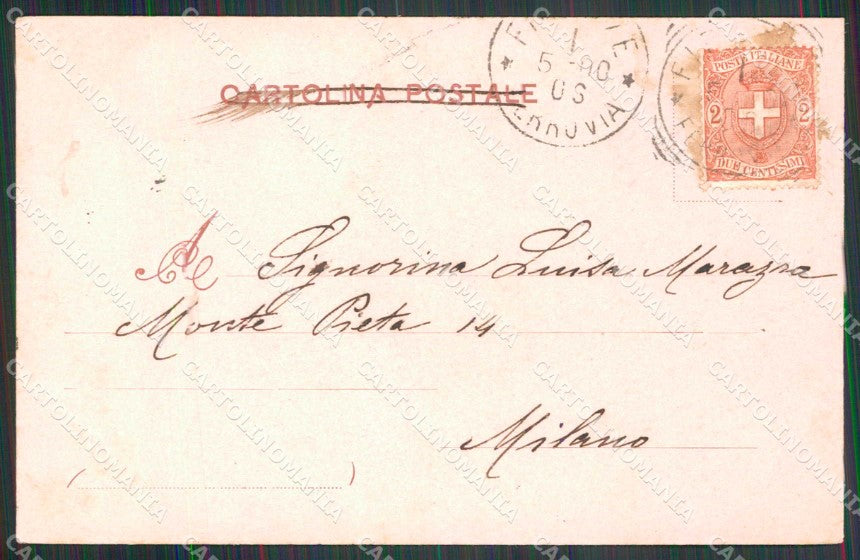 CARTOLINA POSTALE
FERROVIA
POSTE ITALIANE
2 2
DUE CENTESIMI
A
Signorina Luisa Marazza
Monte Pieta 14
Milano
CARTOLINOMANIA